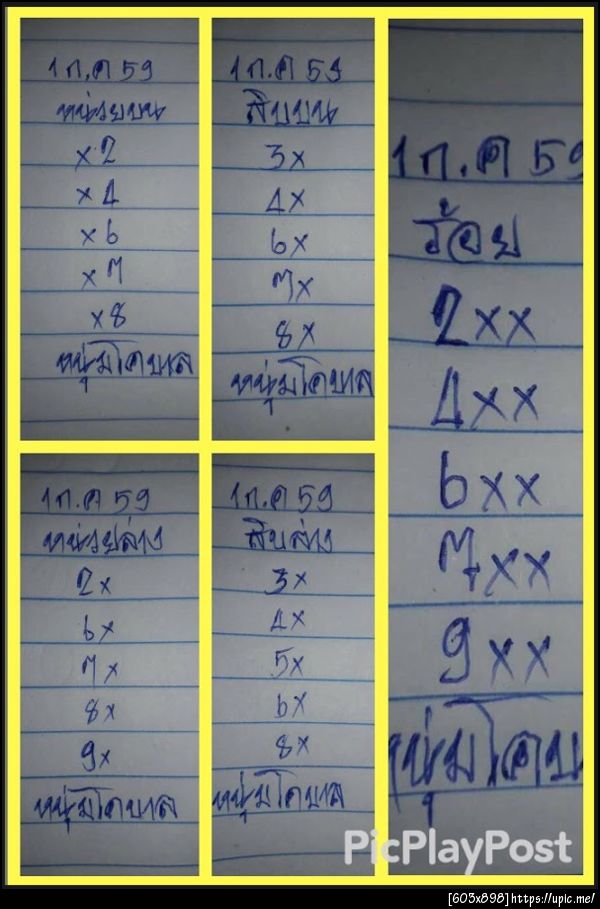 1 ก.ค 59
หน่วยบน
x2
x4
x6
x7
x8
หนุ่มโคบาล
1 ก.ค 59
สิบบน
3x
4x
6x
7x
8x
หนุ่มโคบาล
1 ก.ค 59
ร้อย
2xx
4xx
6xx
7xx
9xx
หนุ่มโคบา
1 ก.ค 59
หน่วยล่าง
2x
6x
7x
8x
9x
หนุ่มโคบาล
1 ก.ค 59
สิบล่าง
3x
4x
5x
6x
8x
หนุ่มโคบาล
PicPlayPost
[603x898]https://upic.me/